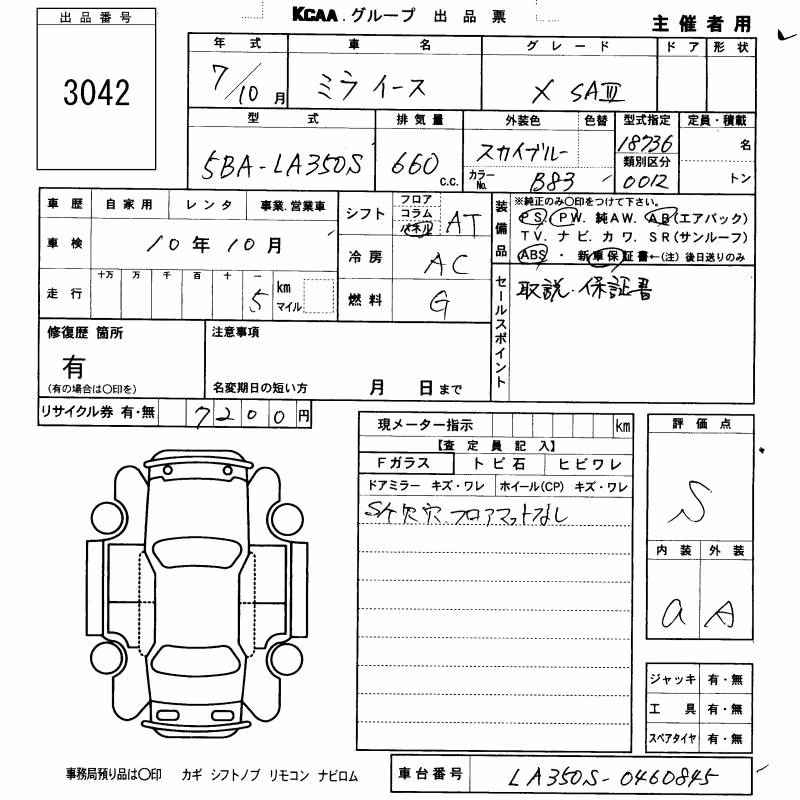 出品番号
3042
KCAA.グループ 出品票
主催者用
年式 車名 グレード ドア 形状
7/10月 ミライース X SAⅢ
型式 排気量 外装色 色替 型式指定 定員・積載
5BA-LA350S 660 c.c. スカイブルー 18736 名
カラーNo. B83 類別区分 0012 トン
車歴 自家用 レンタ 事業.営業車
車検 10年10月
走行 十万 万 千 百 十 一
5 km マイル
シフト フロア コラム パネル AT
冷房 AC
燃料 G
装備品 ※純正のみ〇印をつけて下さい。
PS. PW. 純AW. AB(エアバック)
TV. ナビ. カワ. SR(サンルーフ)
ABS ・ 新車保証書←(注) 後日送りのみ
セールスポイント 取説.保証書
修復歴 箇所
有
(有の場合は〇印を)
注意事項
名変期日の短い方 月 日まで
リサイクル券 有・無 7200円
現メーター指示 km
【査定員記入】
Fガラス トビ石 ヒビワレ
ドアミラー キズ・ワレ ホイール(CP) キズ・ワレ
フロアマットなし
評価点
S
内装 外装
a A
ジャッキ 有・無
工具 有・無
スペアタイヤ 有・無
事務局預り品は〇印 カギ シフトノブ リモコン ナビロム
車台番号 LA350S-0460845